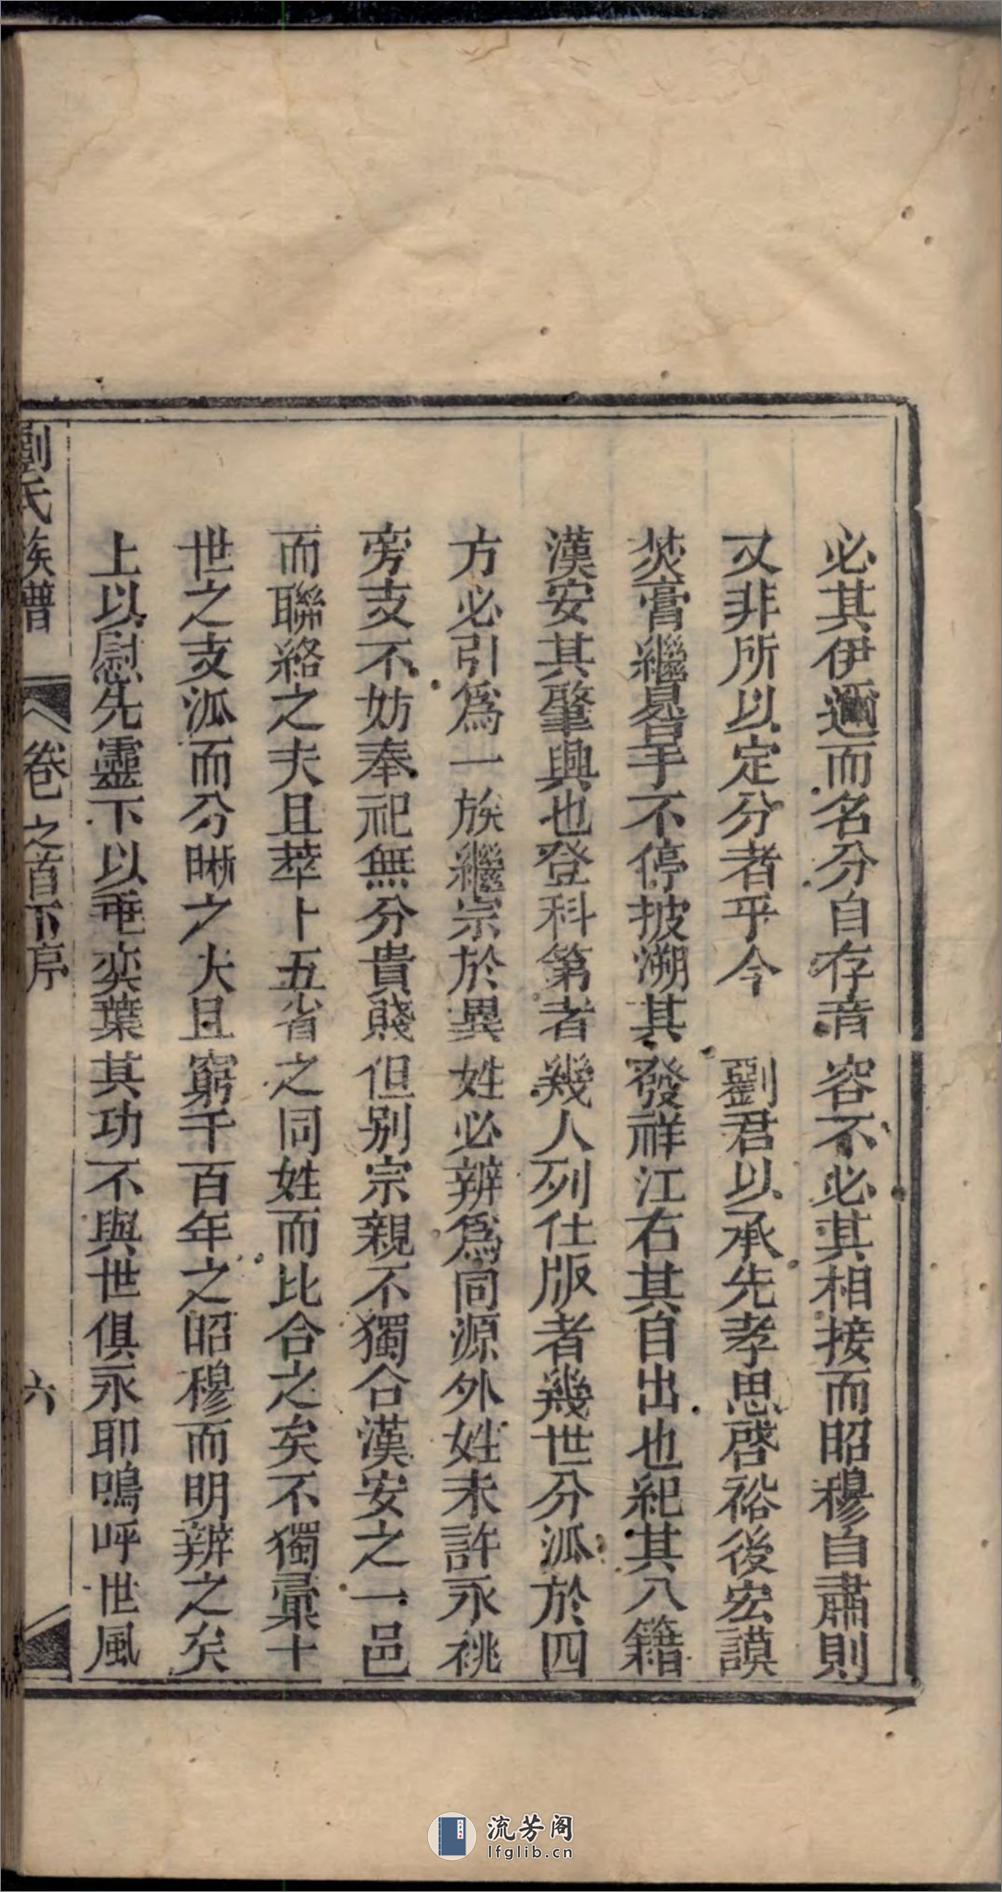 必其伊邇而名分自存音容不必其相接而昭穆自肅則
又非所以定分者乎今 劉君以承先孝思啓裕後宏謨
焚膏繼晷手不停披溯其發祥江右其自出也紀其入籍
漢安其肇興也登科第者幾人列仕版者幾世分泒於四
方必引爲一族繼宗於異姓必辨爲同源外姓未許永祧
旁支不妨奉祀無分貴賤但别宗親不獨合漢安之一邑
而聯絡之夫且萃十五省之同姓而比合之矣不獨彙十
世之支泒而分晰之夫且窮千百年之昭穆而明辨之矣
上以慰先靈下以垂奕葉其功不與世俱永耶嗚呼世風
劉氏族譜 卷之首下序 六
流芳阁
lfglib.cn